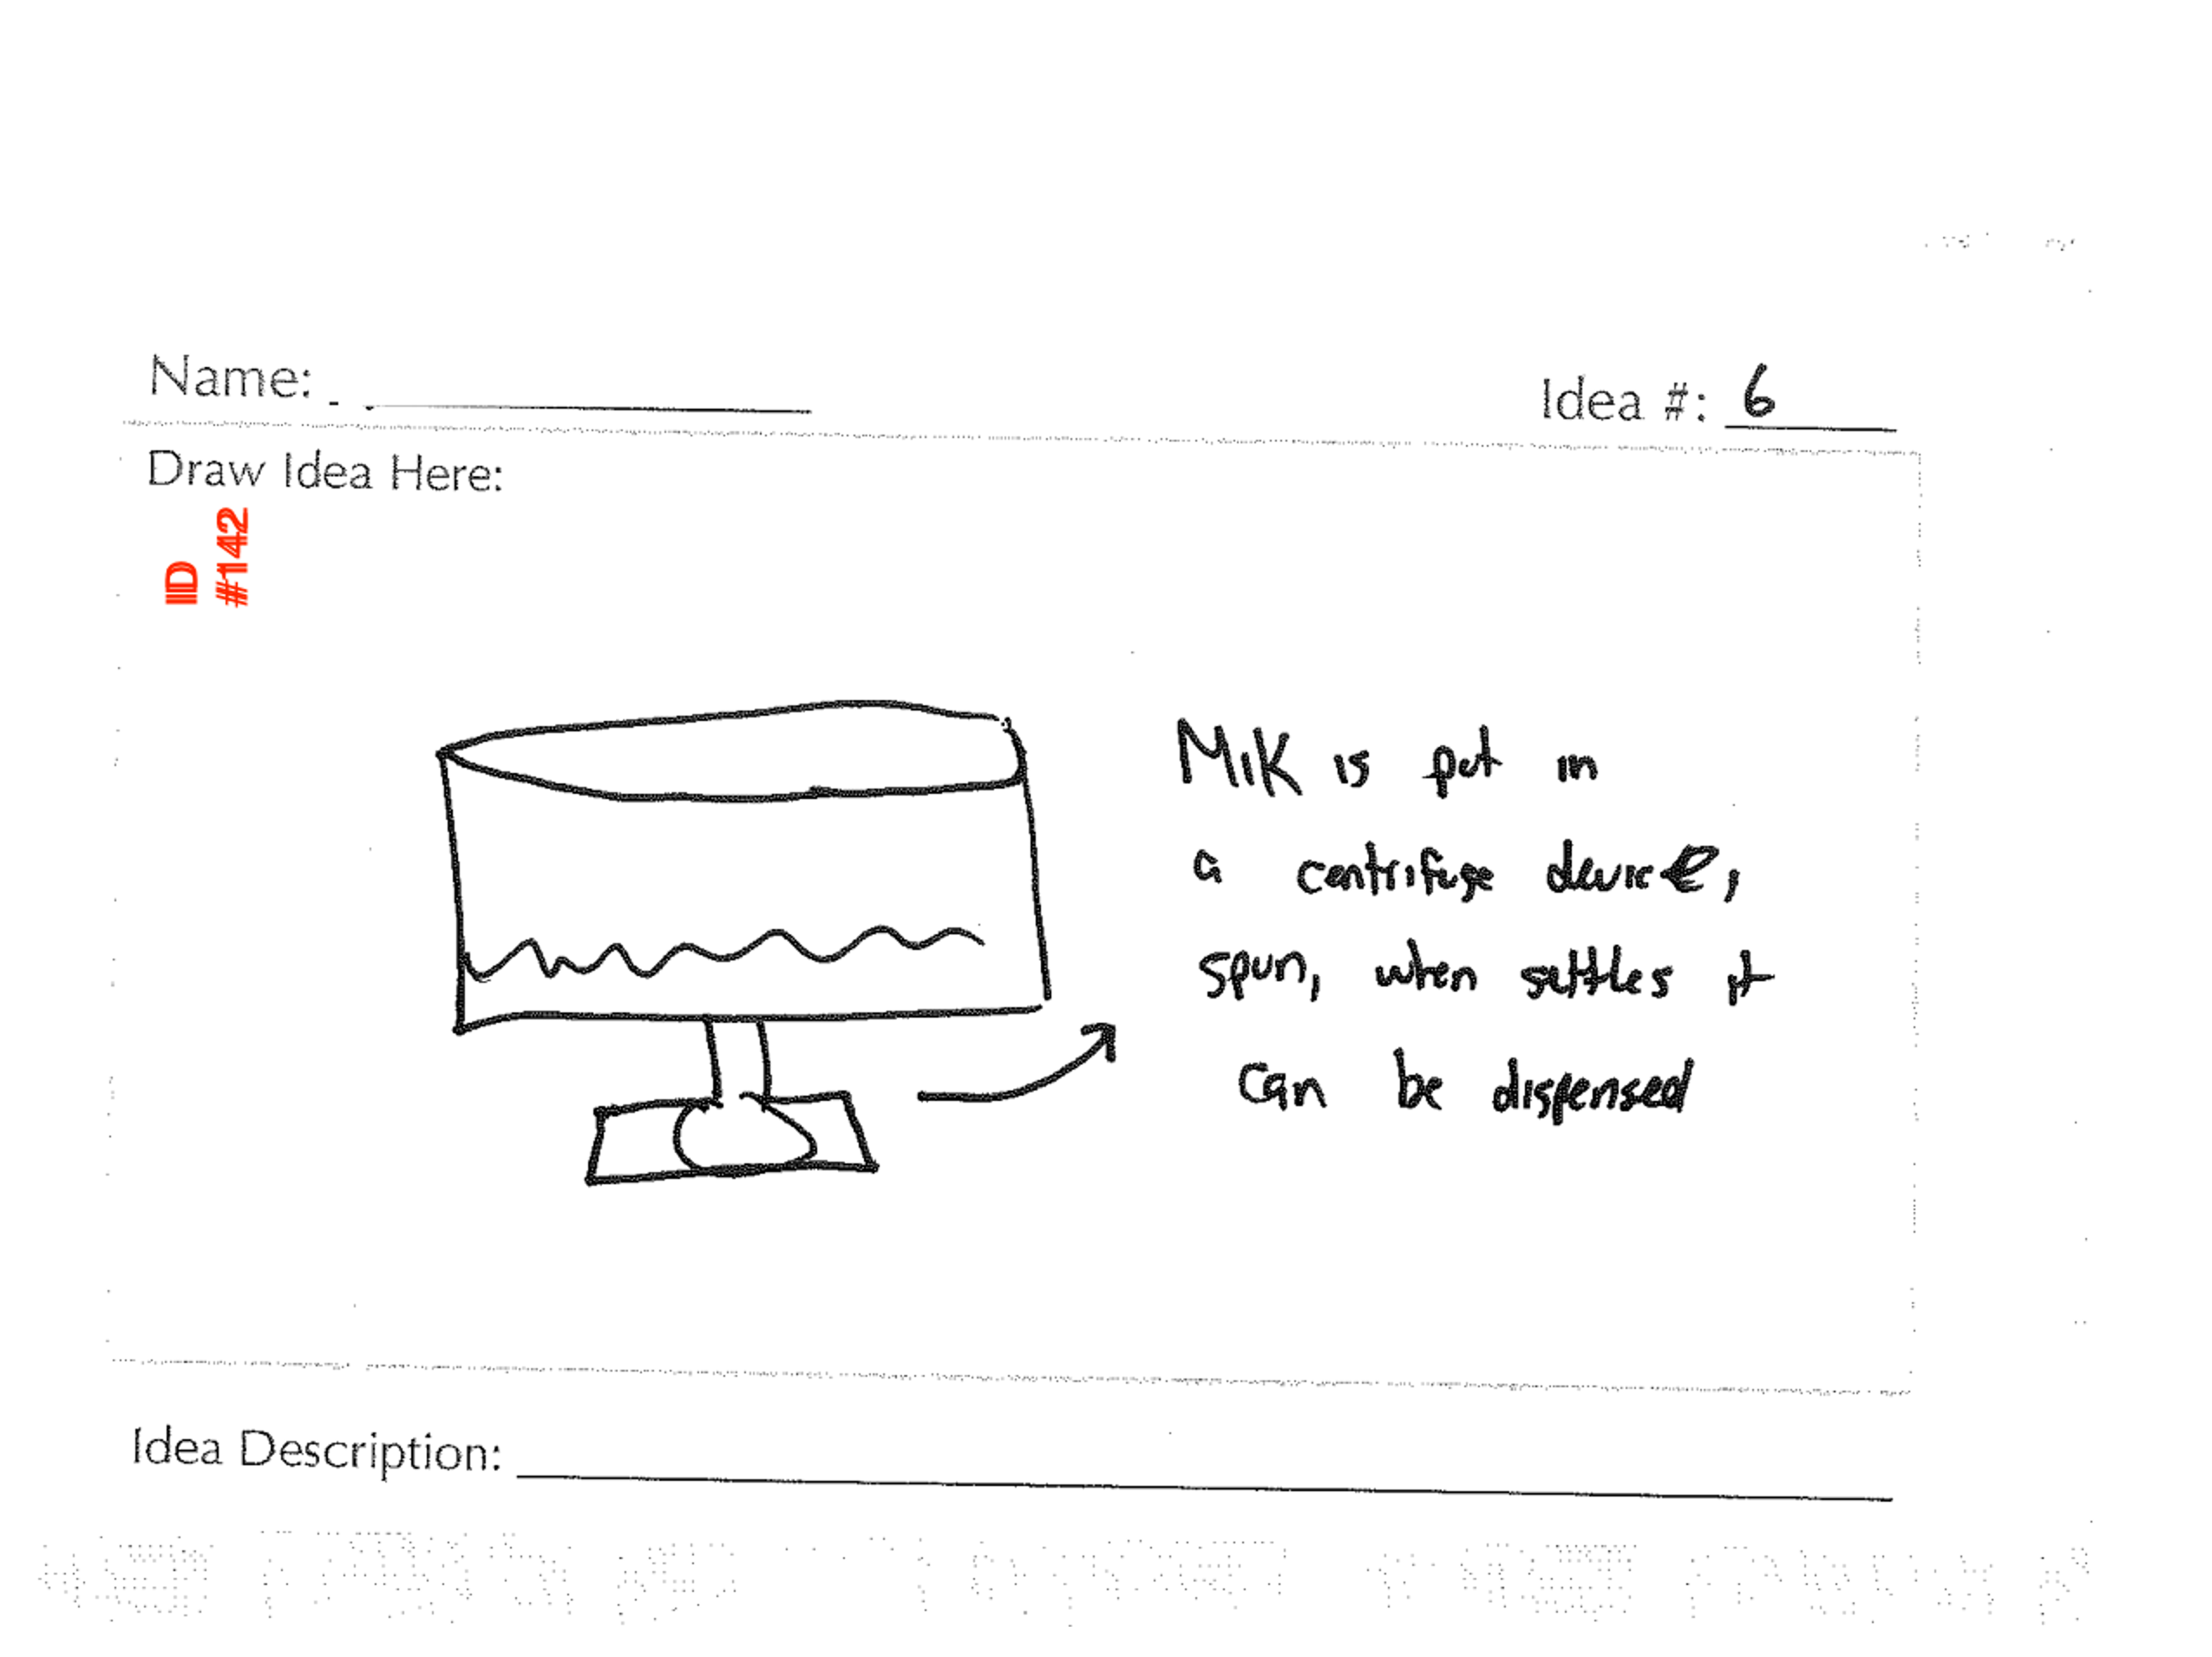 Name:
Idea #: 6
Draw Idea Here:
ID
#142
Mik is put in
a centrifuge device,
spun, when settles it
can be dispensed
Idea Description: